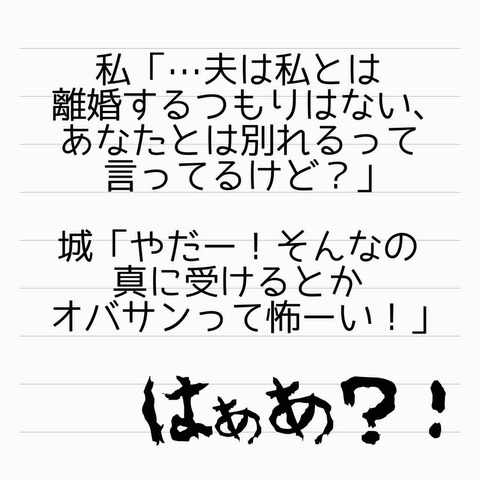 私「…夫は私とは
離婚するつもりはない、
あなたとは別れるって
言ってるけど？」
城「やだー！そんなの
真に受けるとか
オバサンって怖ーい！」
はぁあ？！